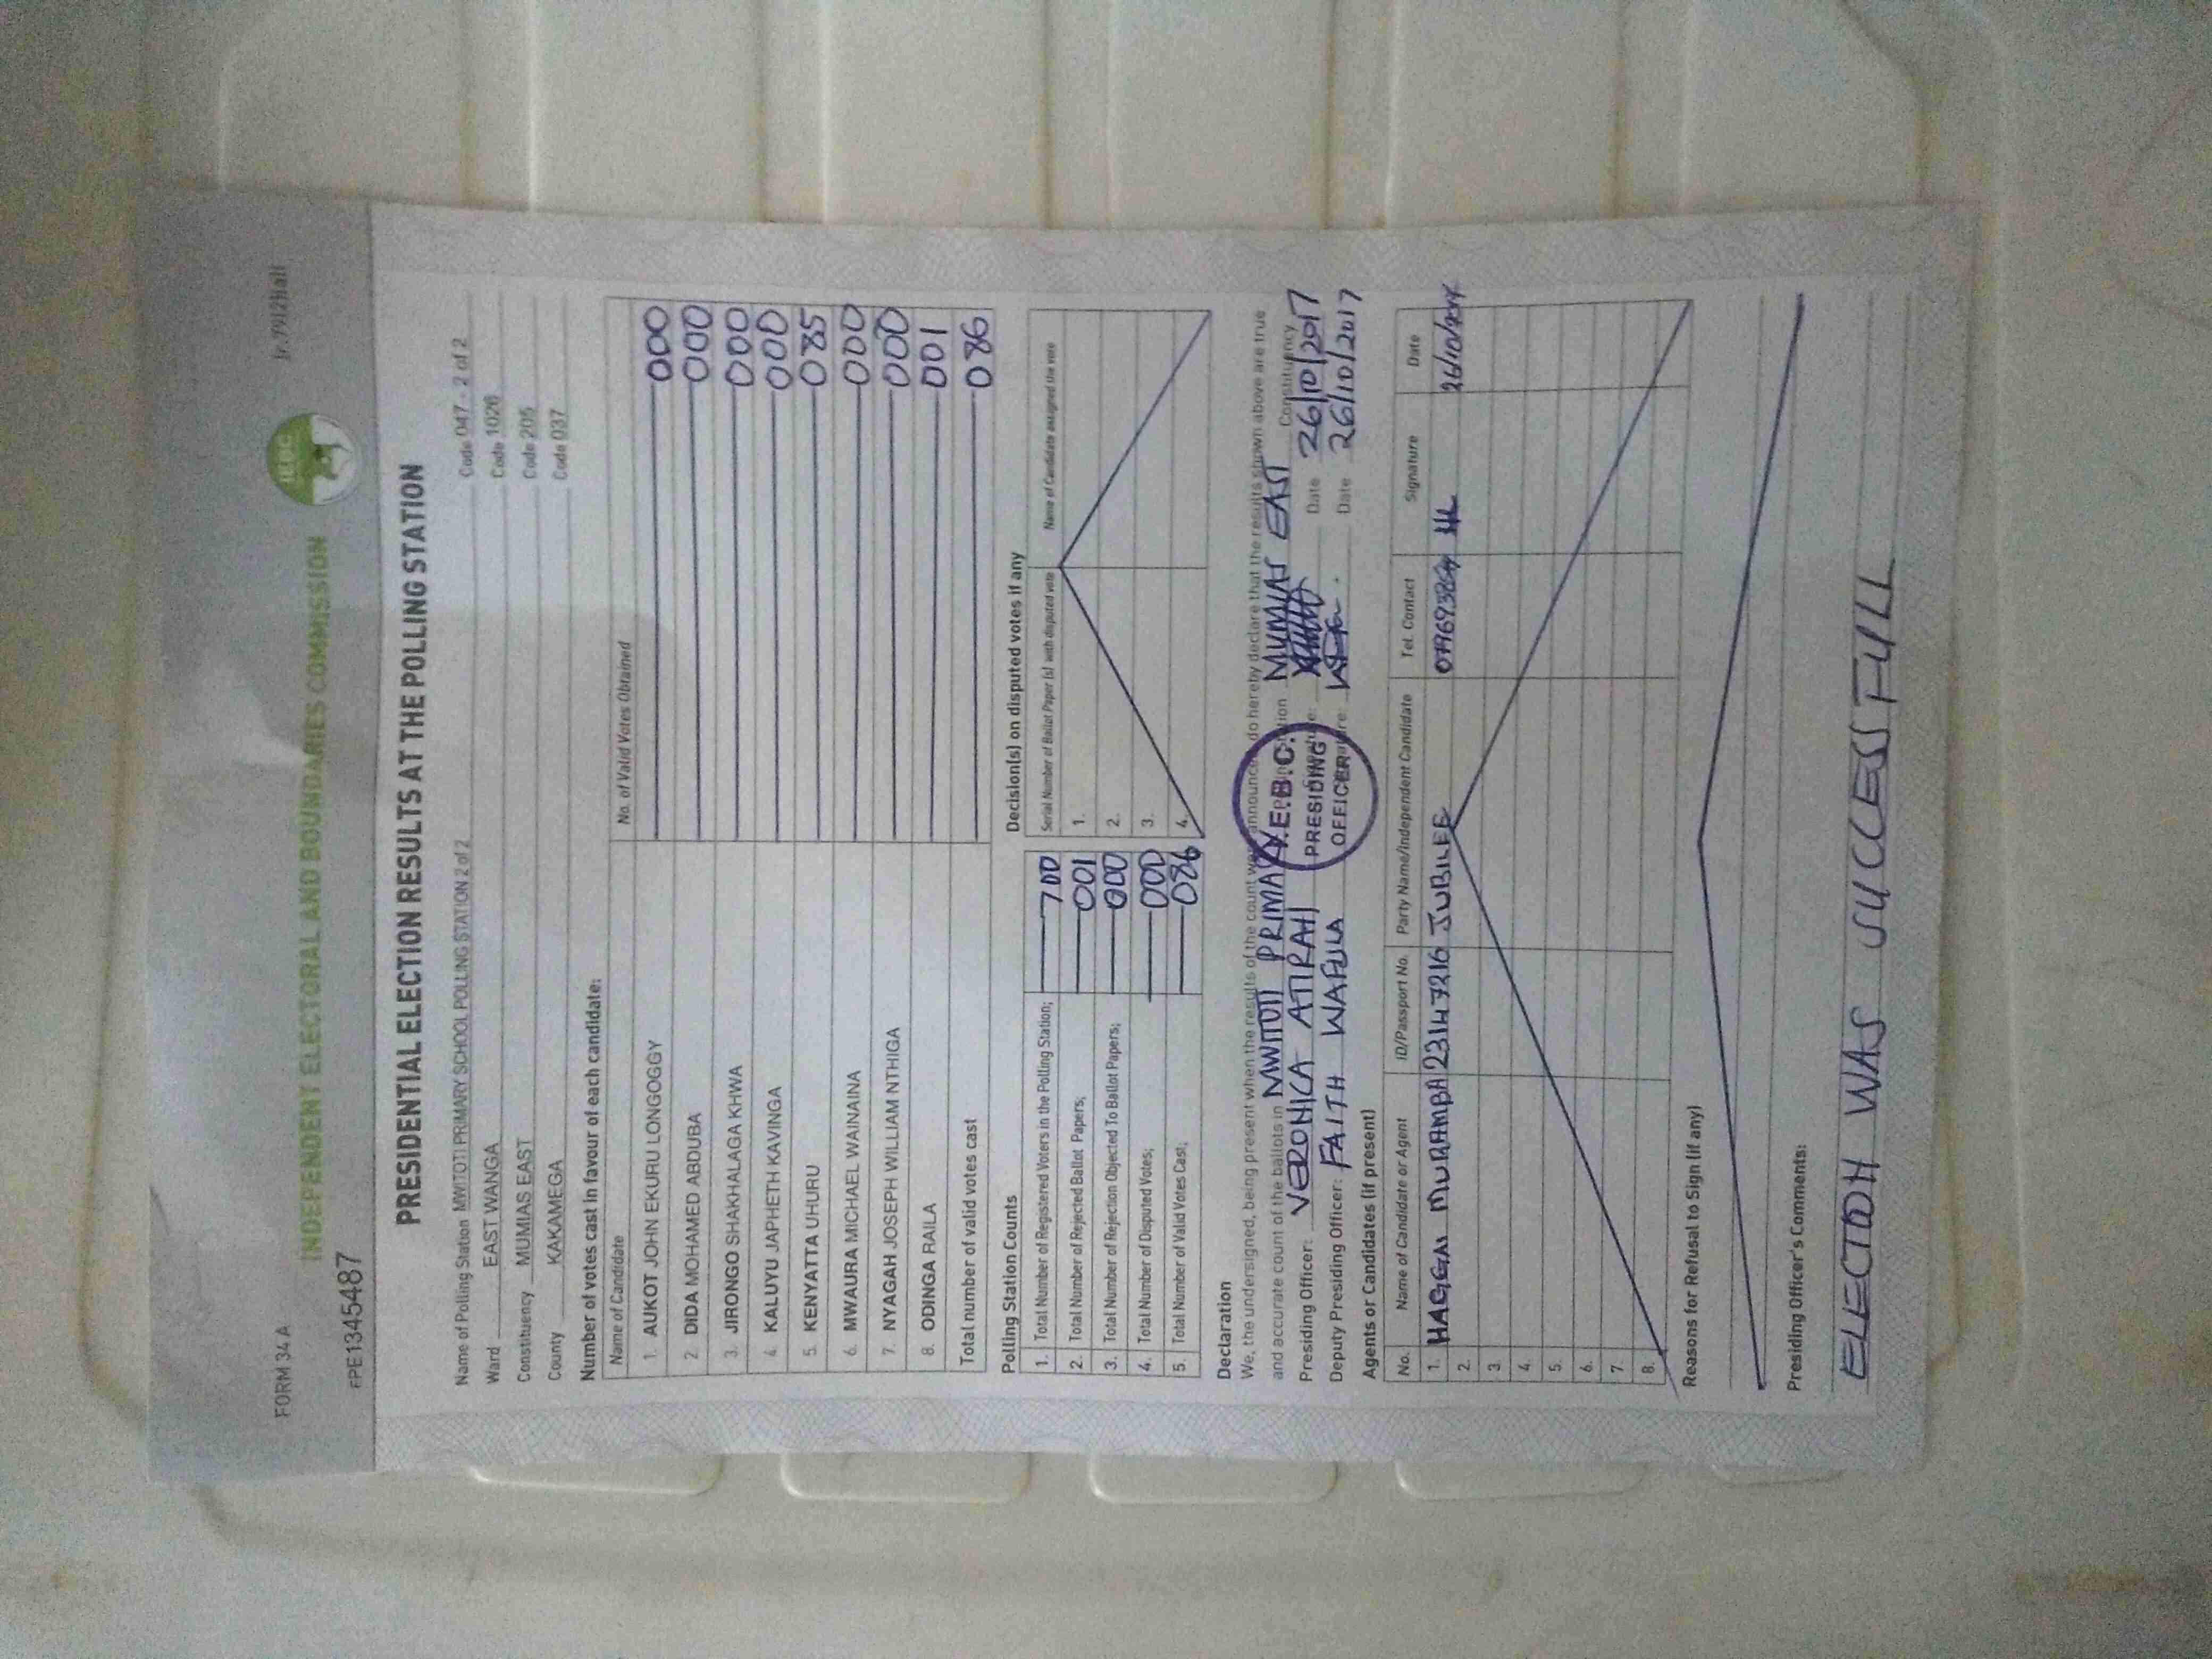 FORM 34 A
INDEPENDENT ELECTORAL AND BOUNDARIES COMMISSION
IEBC
EPE1345487
PRESIDENTIAL ELECTION RESULTS AT THE POLLING STATION
Name of Polling Station MWITOTI PRIMARY SCHOOL POLLING STATION 2 of 2 Code 047 - 2 of 2
Ward EAST WANGA Code 1026
Constituency MUMIAS EAST Code 205
County KAKAMEGA Code 037
Number of votes cast in favour of each candidate:
Name of Candidate No. of Valid Votes Obtained
1. AUKOT JOHN EKURU LONGOGGY 000
2. DIDA MOHAMED ABDUBA 000
3. JIRONGO SHAKHALAGA KHWA 000
4. KALUYU JAPHETH KAVINGA 000
5. KENYATTA UHURU 085
6. MWAURA MICHAEL WAINAINA 000
7. NYAGAH JOSEPH WILLIAM NTHIGA 000
8. ODINGA RAILA 001
Total number of valid votes cast 086
Polling Station Counts
1. Total Number of Registered Voters in the Polling Station; 700
2. Total Number of Rejected Ballot Papers; 001
3. Total Number of Rejection Objected To Ballot Papers; 000
4. Total Number of Disputed Votes; 000
5. Total Number of Valid Votes Cast; 086
Decision(s) on disputed votes if any
Serial Number of Ballot Paper (s) with disputed vote Name of Candidate assigned the vote
1.
2.
3.
4.
Declaration
We, the undersigned, being present when the results of the count were announced, do hereby declare that the results shown above are true
and accurate count of the ballots in MWITOTI PRIMARY MUMIAS EAST Constituency
Presiding Officer: VERONICA ATIRAH Date 26/10/2017
Deputy Presiding Officer: FAITH WAFULA Date 26/10/2017
I.E.B.C.
PRESIDING
OFFICER
Agents or Candidates (if present)
No. Name of Candidate or Agent ID/Passport No. Party Name/Independent Candidate Tel. Contact Signature Date
1. HAGGAI MURAMBA 23147216 JUBILEE
2.
3.
4.
5.
6.
7.
8.
Reasons for Refusal to Sign (if any)
Presiding Officer's Comments:
ELECTION WAS SUCCESSFULL